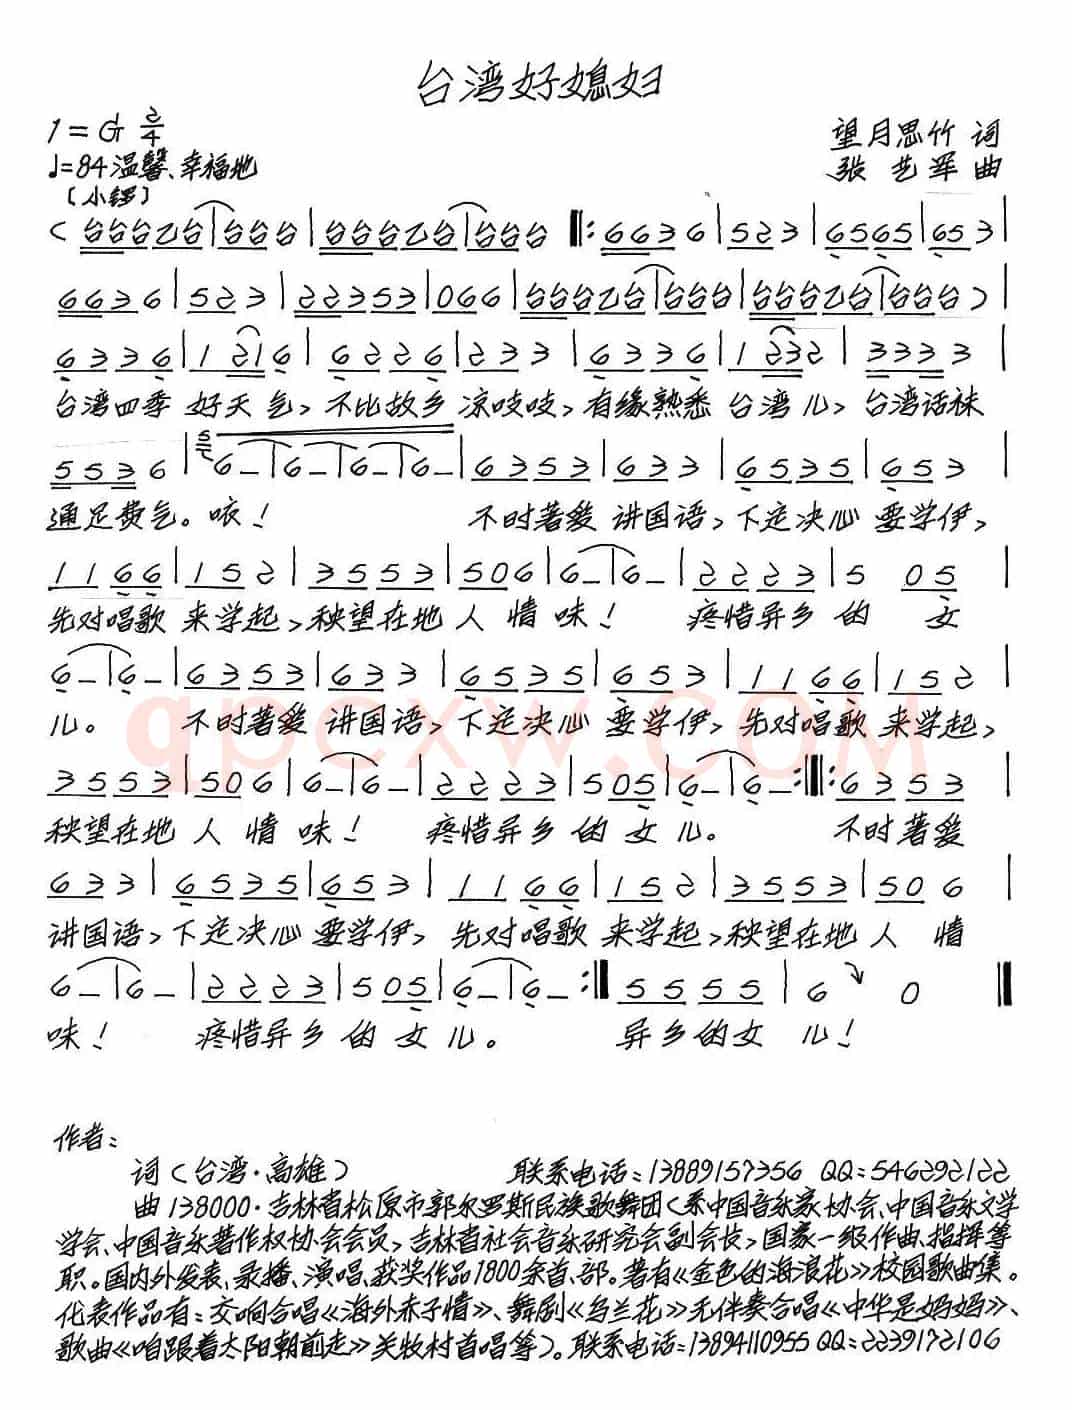 台湾好媳妇
1=G 2/4
望月思竹 词
♩=84 温馨、幸福地
张艺军 曲
(小锣)
(台台台乙台|台台台|台台台乙台|台台台‖:6636|523|6565|653|
6636|523|22353|066|台台台乙台|台台台|台台台乙台|台台台)|
6336|1216|6226|233|6336|1232|3333|
台湾四季 好天气,不比故乡 凉吱吱,有缘熟悉 台湾儿,台湾话袜
5536|6–|6–|6–|6–|6353|633|6535|653|
通足费气。咳! 不时著爱 讲国语,下定决心 要学伊,
1166|152|3553|506|6–|6–|2223|5 05|
先对唱歌 来学起,秧望在地 人 情 味! 疼惜异乡 的 女
6–|6–|6353|633|6535|653|1166|152|
儿。 不时著爱 讲国语,下定决心 要学伊,先对唱歌 来学起,
3553|506|6–|6–|2223|505|6–|6–:‖:6353|
秧望在地 人 情 味! 疼惜异乡 的 女 儿。 不时著爱
633|6535|653|1166|152|3553|506|
讲国语,下定决心 要学伊,先对唱歌 来学起,秧望在地 人 情
6–|6–|2223|505|6–|6–:‖5555|6 0‖
味! 疼惜异乡 的 女 儿。 异乡的女 儿!
qpcxw.COM
作者:
词(台湾·高雄) 联系电话:13889157356 QQ:546292122
曲138000·吉林省松原市郭尔罗斯民族歌舞团(系中国音乐家协会、中国音乐文学
学会、中国音乐著作权协会会员,吉林省社会音乐研究会副会长,国家一级作曲、指挥等
职。国内外发表、录播、演唱、获奖作品1800余首、部。著有《金色的海浪花》校园歌曲集。
代表作品有:交响合唱《海外赤子情》、舞剧《乌兰花》无伴奏合唱《中华是妈妈》、
歌曲《咱跟着太阳朝前走》关牧村首唱等)。联系电话:13894110955 QQ:2239172106